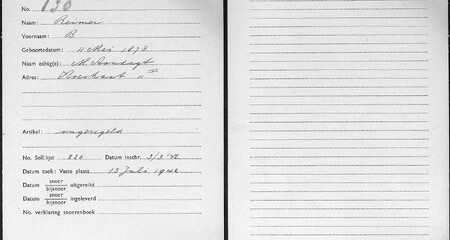 No. 130
Naam: Reumer
Voornaam: B
Geboortedatum: 11 Mei 1878
Naam echtg(e):
Adres:
Artikel: ongeregeld
No. Soll.lijst 220 Datum inschr. 3/3 '42
Datum toek: Vaste plaats 13 Juli 1942
Datum snoer / bijsnoer uitgereikt
Datum snoer / bijsnoer ingeleverd
No. verklaring snoerenboek